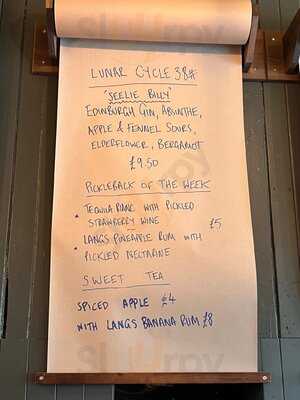 LUNAR CYCLE 38#
'SEELIE BILLY'
EDINBURGH GIN, ABSINTHE,
APPLE & FENNEL SOURS,
ELDERFLOWER, BERGAMOT
£9.50
PICKLEBACK OF THE WEEK
• TEQUILA BLANC WITH PICKLED
STRAWBERRY WINE £5
• LANGS PINEAPPLE RUM WITH
PICKLED NECTARINE
SWEET TEA
SPICED APPLE £4
WITH LANGS BANANA RUM £8
Sluurpy
Sluurpy